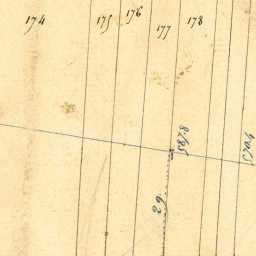 174
175
176
177
178
587.8
570.4
29.